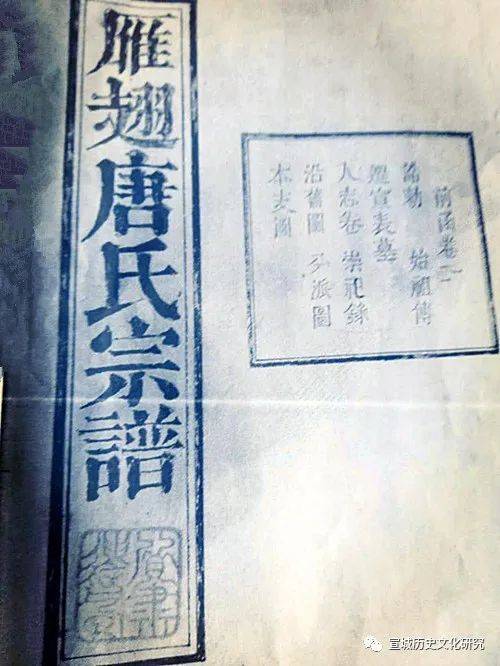 雁翅唐氏宗譜
前函卷二
誥勅　始祖傳
墓
人志卷 崇祀錄
沿舊圖 分派圖
本支圖
宣城历史文化研究